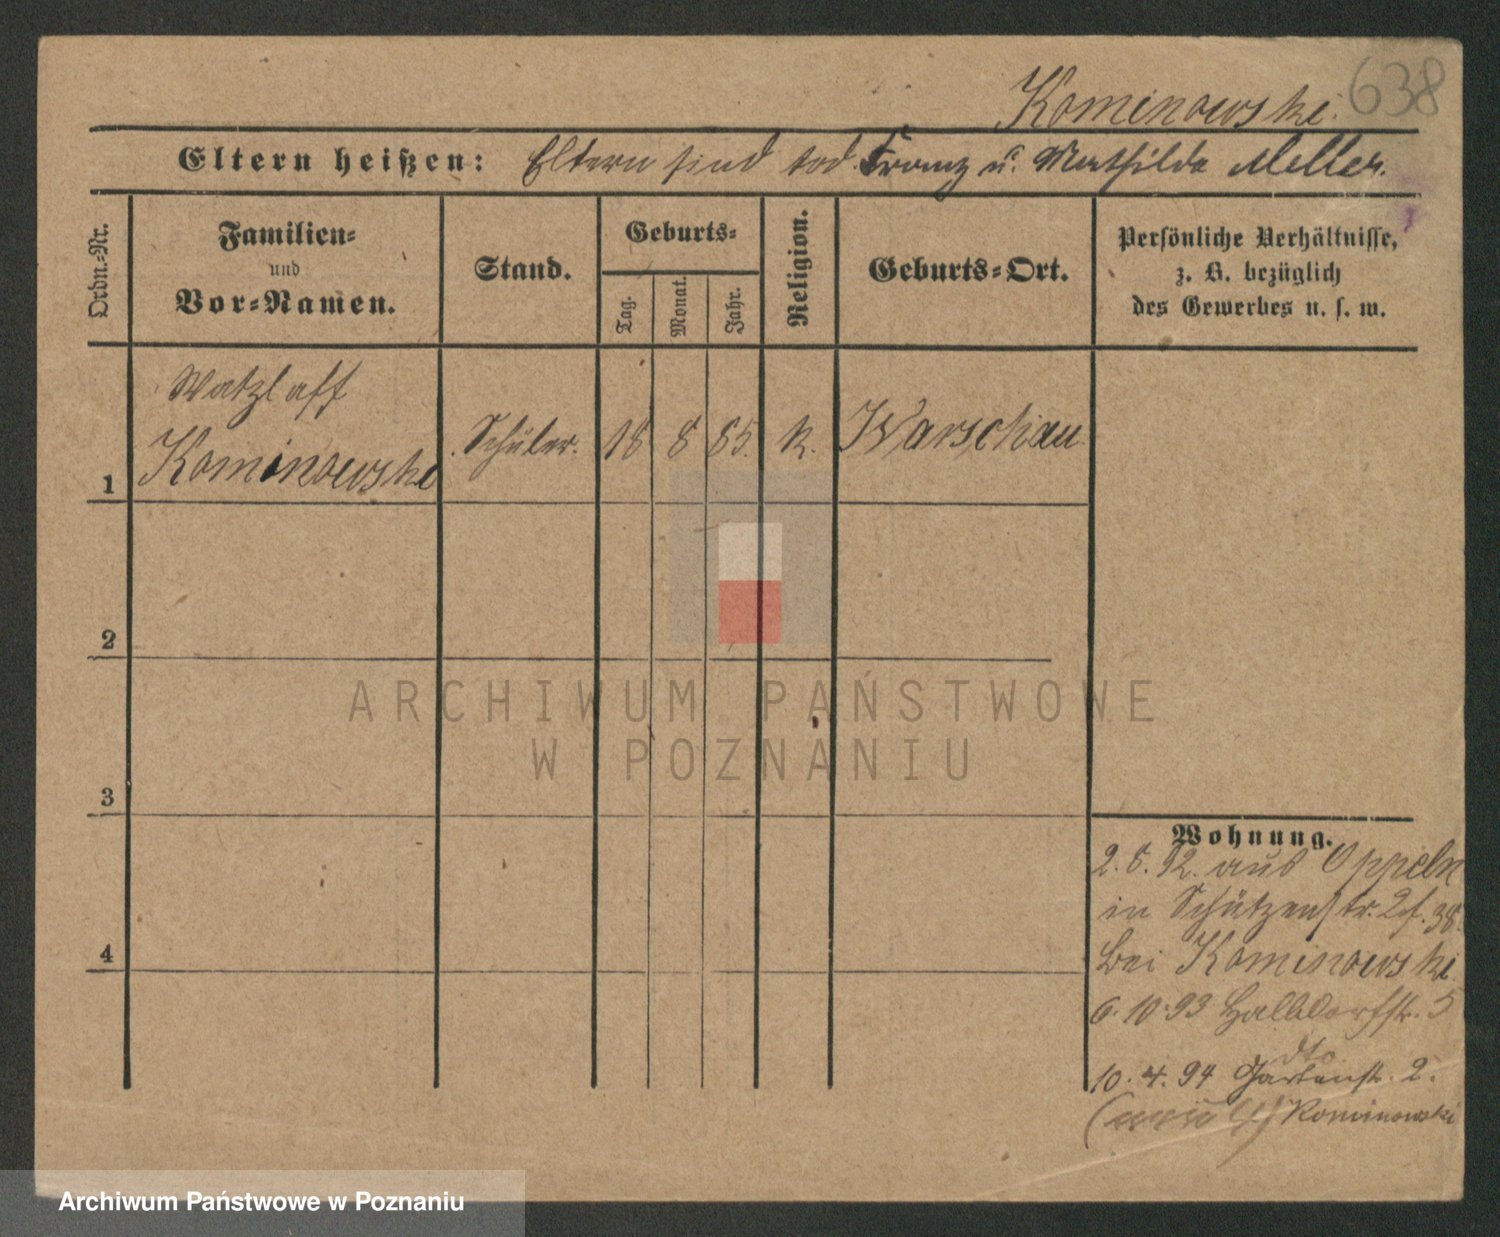 638
Kominowski.
Eltern heißen: Eltern sind tod. Franz u. Mathilde Meller.
Ordn.-Nr.
Familien-
und
Vor-Namen.
Stand.
Geburts-
Tag.
Monat.
Jahr.
Religion.
Geburts-Ort.
Persönliche Verhältnisse,
z. B. bezüglich
des Gewerbes u. s. w.
Watzlaff
1 Kominowski Schüler. 18 8 85. k. Warschau
2
3
4
Wohnung.
2. 5. 92. aus Oppeln
in Schützenstr. 38.
bei Kominowski
6. 10. 93 Halbdorfstr. 5
dto
10. 4. 94 Gartenstr. 2.
Kominowski
ARCHIWUM PAŃSTWOWE
W POZNANIU
Archiwum Państwowe w Poznaniu